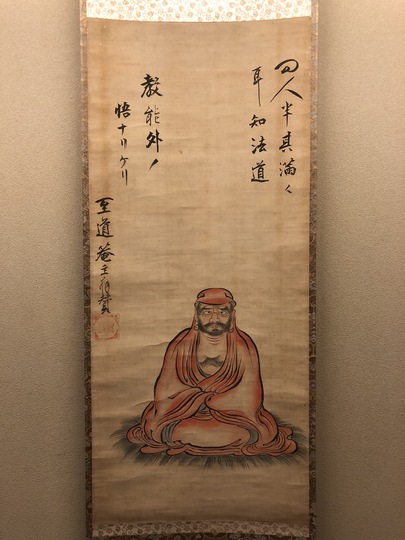 四人半其滿〻
耳知法道
教能外ノ
悟ナリケリ
至道菴主